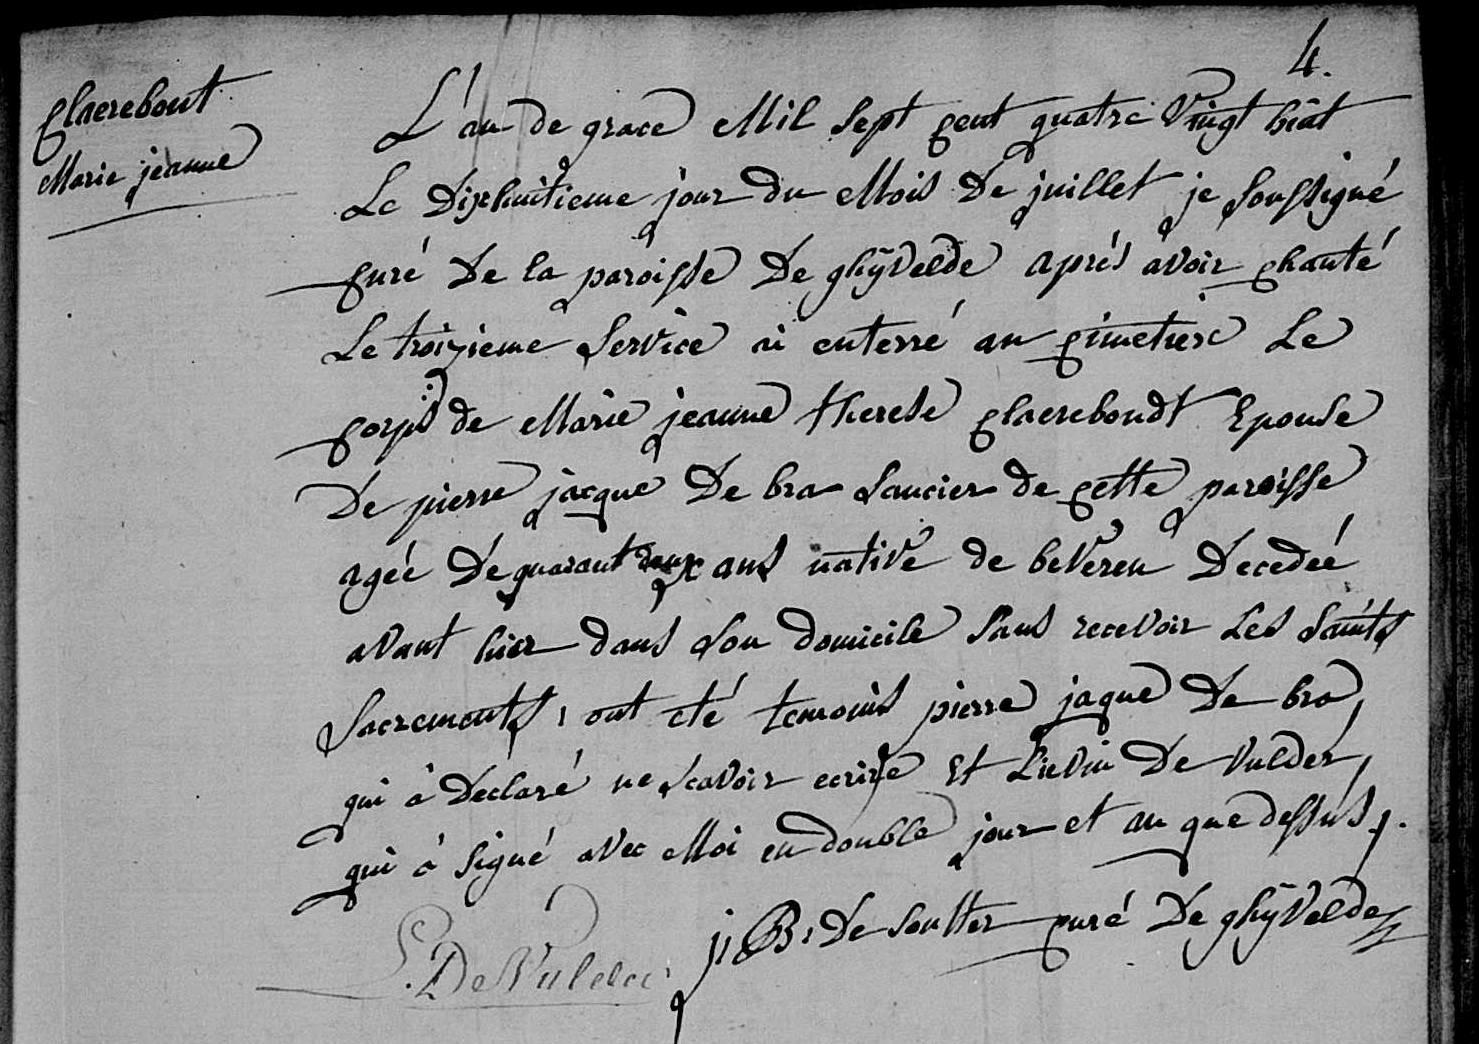 4.
Claerebout
Marie jeanne
L'an de grace Mil Sept cent quatre Vingt huit
Le Dixhuitieme jour du Mois De juillet je soussigné
curé De la paroisse De ghÿvelde après avoir chanté
Le troizieme service ai enterré au cimetiere Le
corps de Marie jeanne therese Claereboudt Epouse
De pierre jacque De bra saucier de cette paroisse
agée De quarant deux ans native de beveren Decedeé
avant hier dans son domicile sans recevoir Les saints
Sacrements, ont eté temoins pierre jaque De bra,
qui à Declaré ne scavoir ecrire Et Lievin De Vulder,
qui à signé avec Moi en double jour et an que dessus.
L. De Vulder
j, B, De soutter curé De ghÿvelde